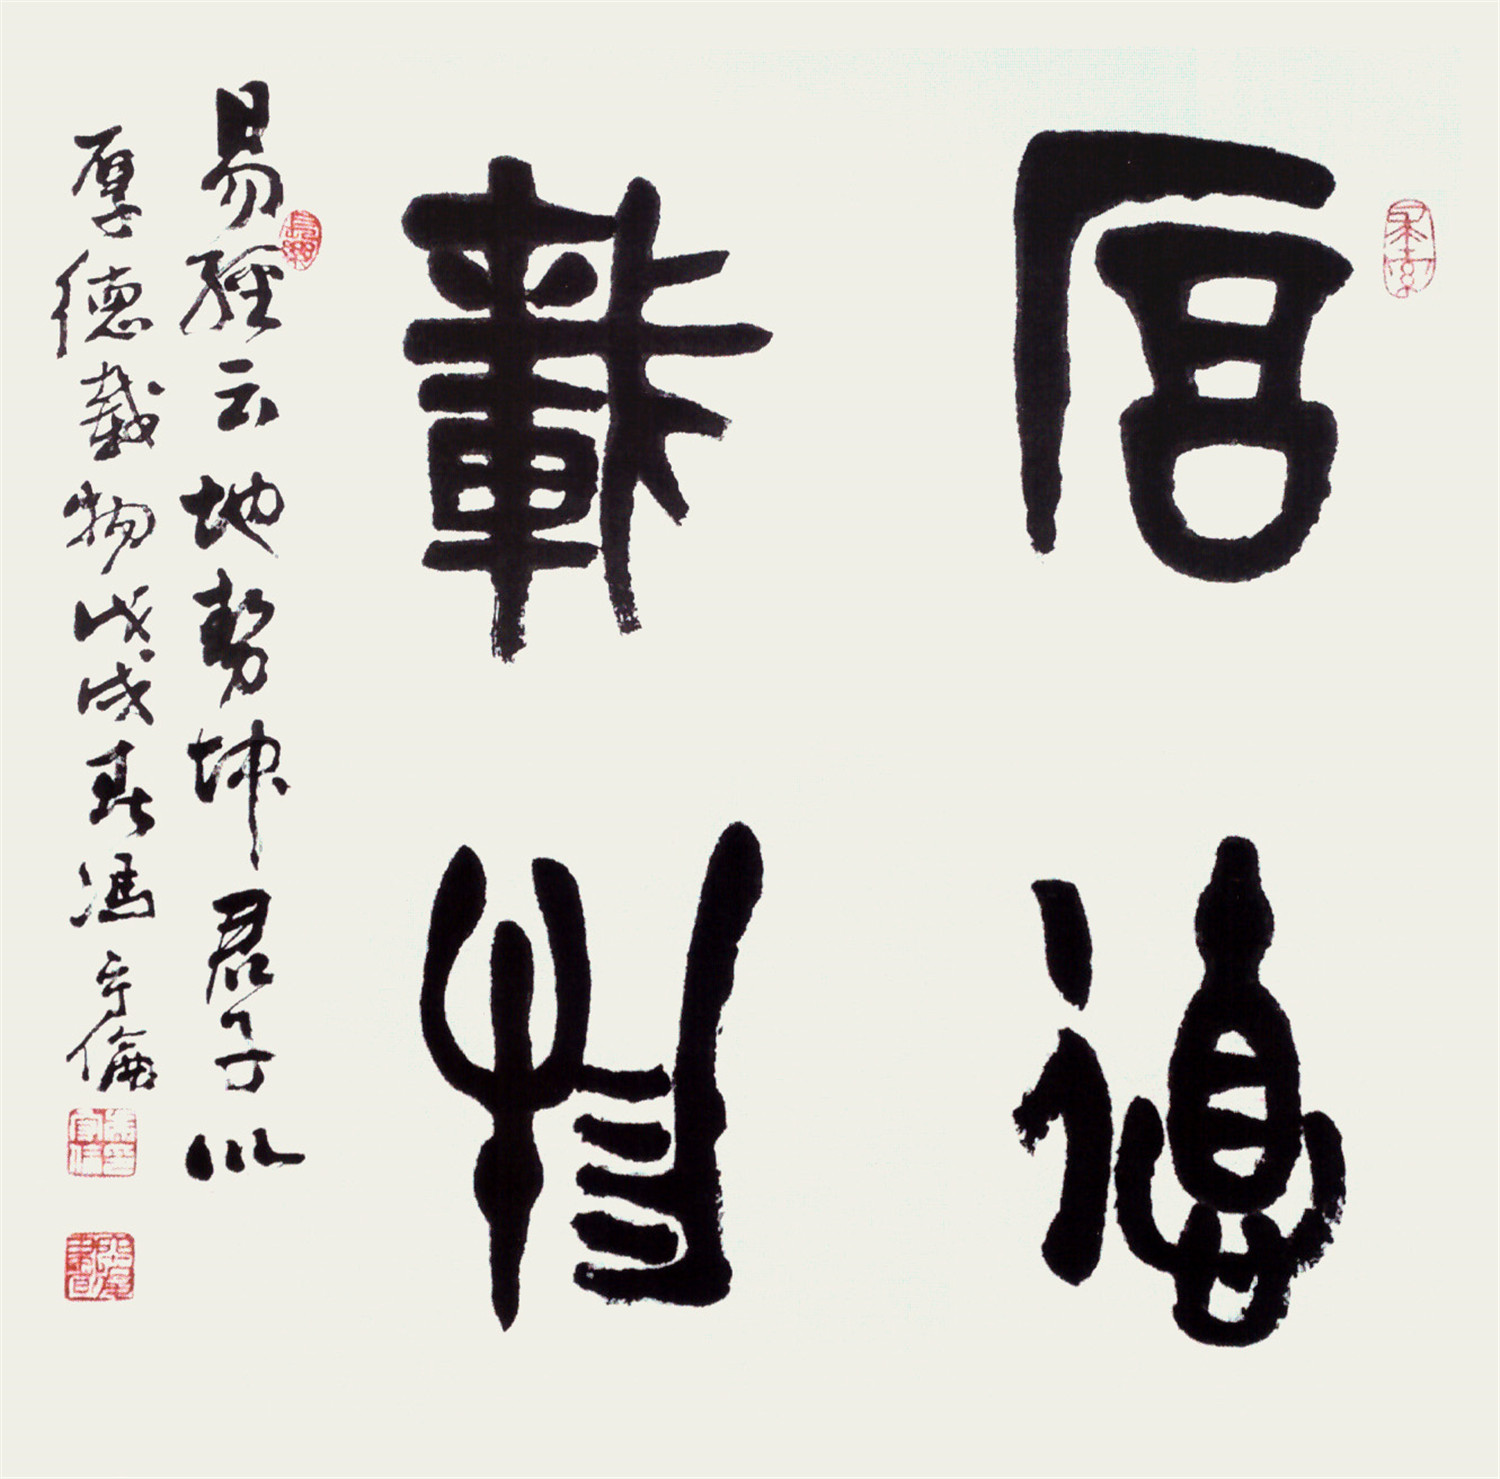 厚德
載物
易經云地勢坤君子以
厚德載物戊戌春馮宇倫